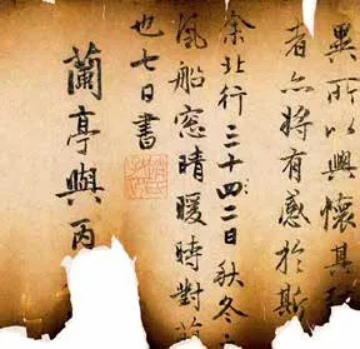 異所以興懷其
者亦將有感於斯
余北行三十四二日秋冬
風船窓晴暖時對
也七日書
蘭亭與丙